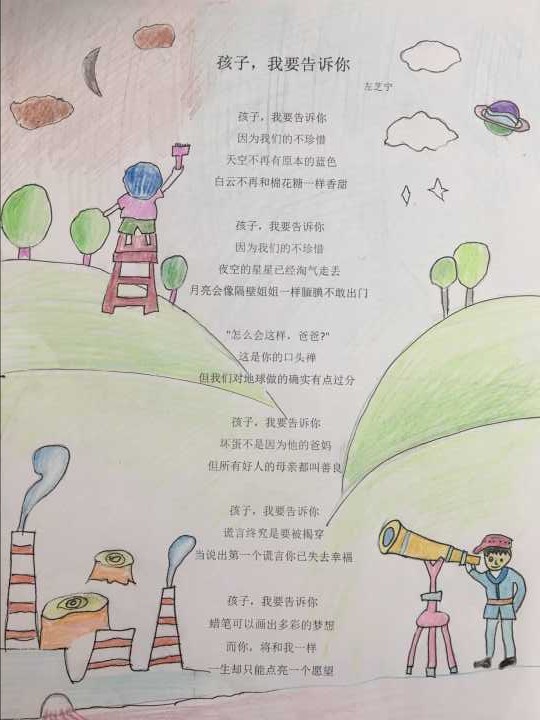 孩子，我要告诉你
左芝宁
孩子，我要告诉你
因为我们的不珍惜
天空不再有原本的蓝色
白云不再和棉花糖一样香甜
孩子，我要告诉你
因为我们的不珍惜
夜空的星星已经淘气走丢
月亮会像隔壁姐姐一样腼腆不敢出门
"怎么会这样，爸爸?"
这是你的口头禅
但我们对地球做的确实有点过分
孩子，我要告诉你
坏蛋不是因为他的爸妈
但所有好人的母亲都叫善良
孩子，我要告诉你
谎言终究是要被揭穿
当说出第一个谎言你已失去幸福
孩子，我要告诉你
蜡笔可以画出多彩的梦想
而你，将和我一样
一生却只能点亮一个愿望